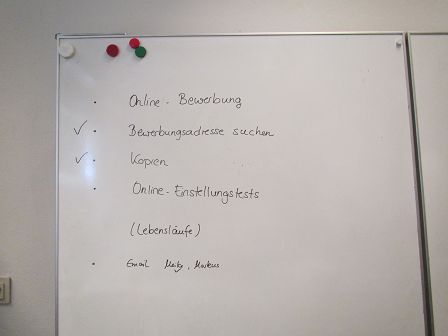 · Online - Bewerbung
✓ · Bewerbungsadresse suchen
✓ · Kopien
· Online - Einstellungstests
(Lebensläufe)
· Email , Markus